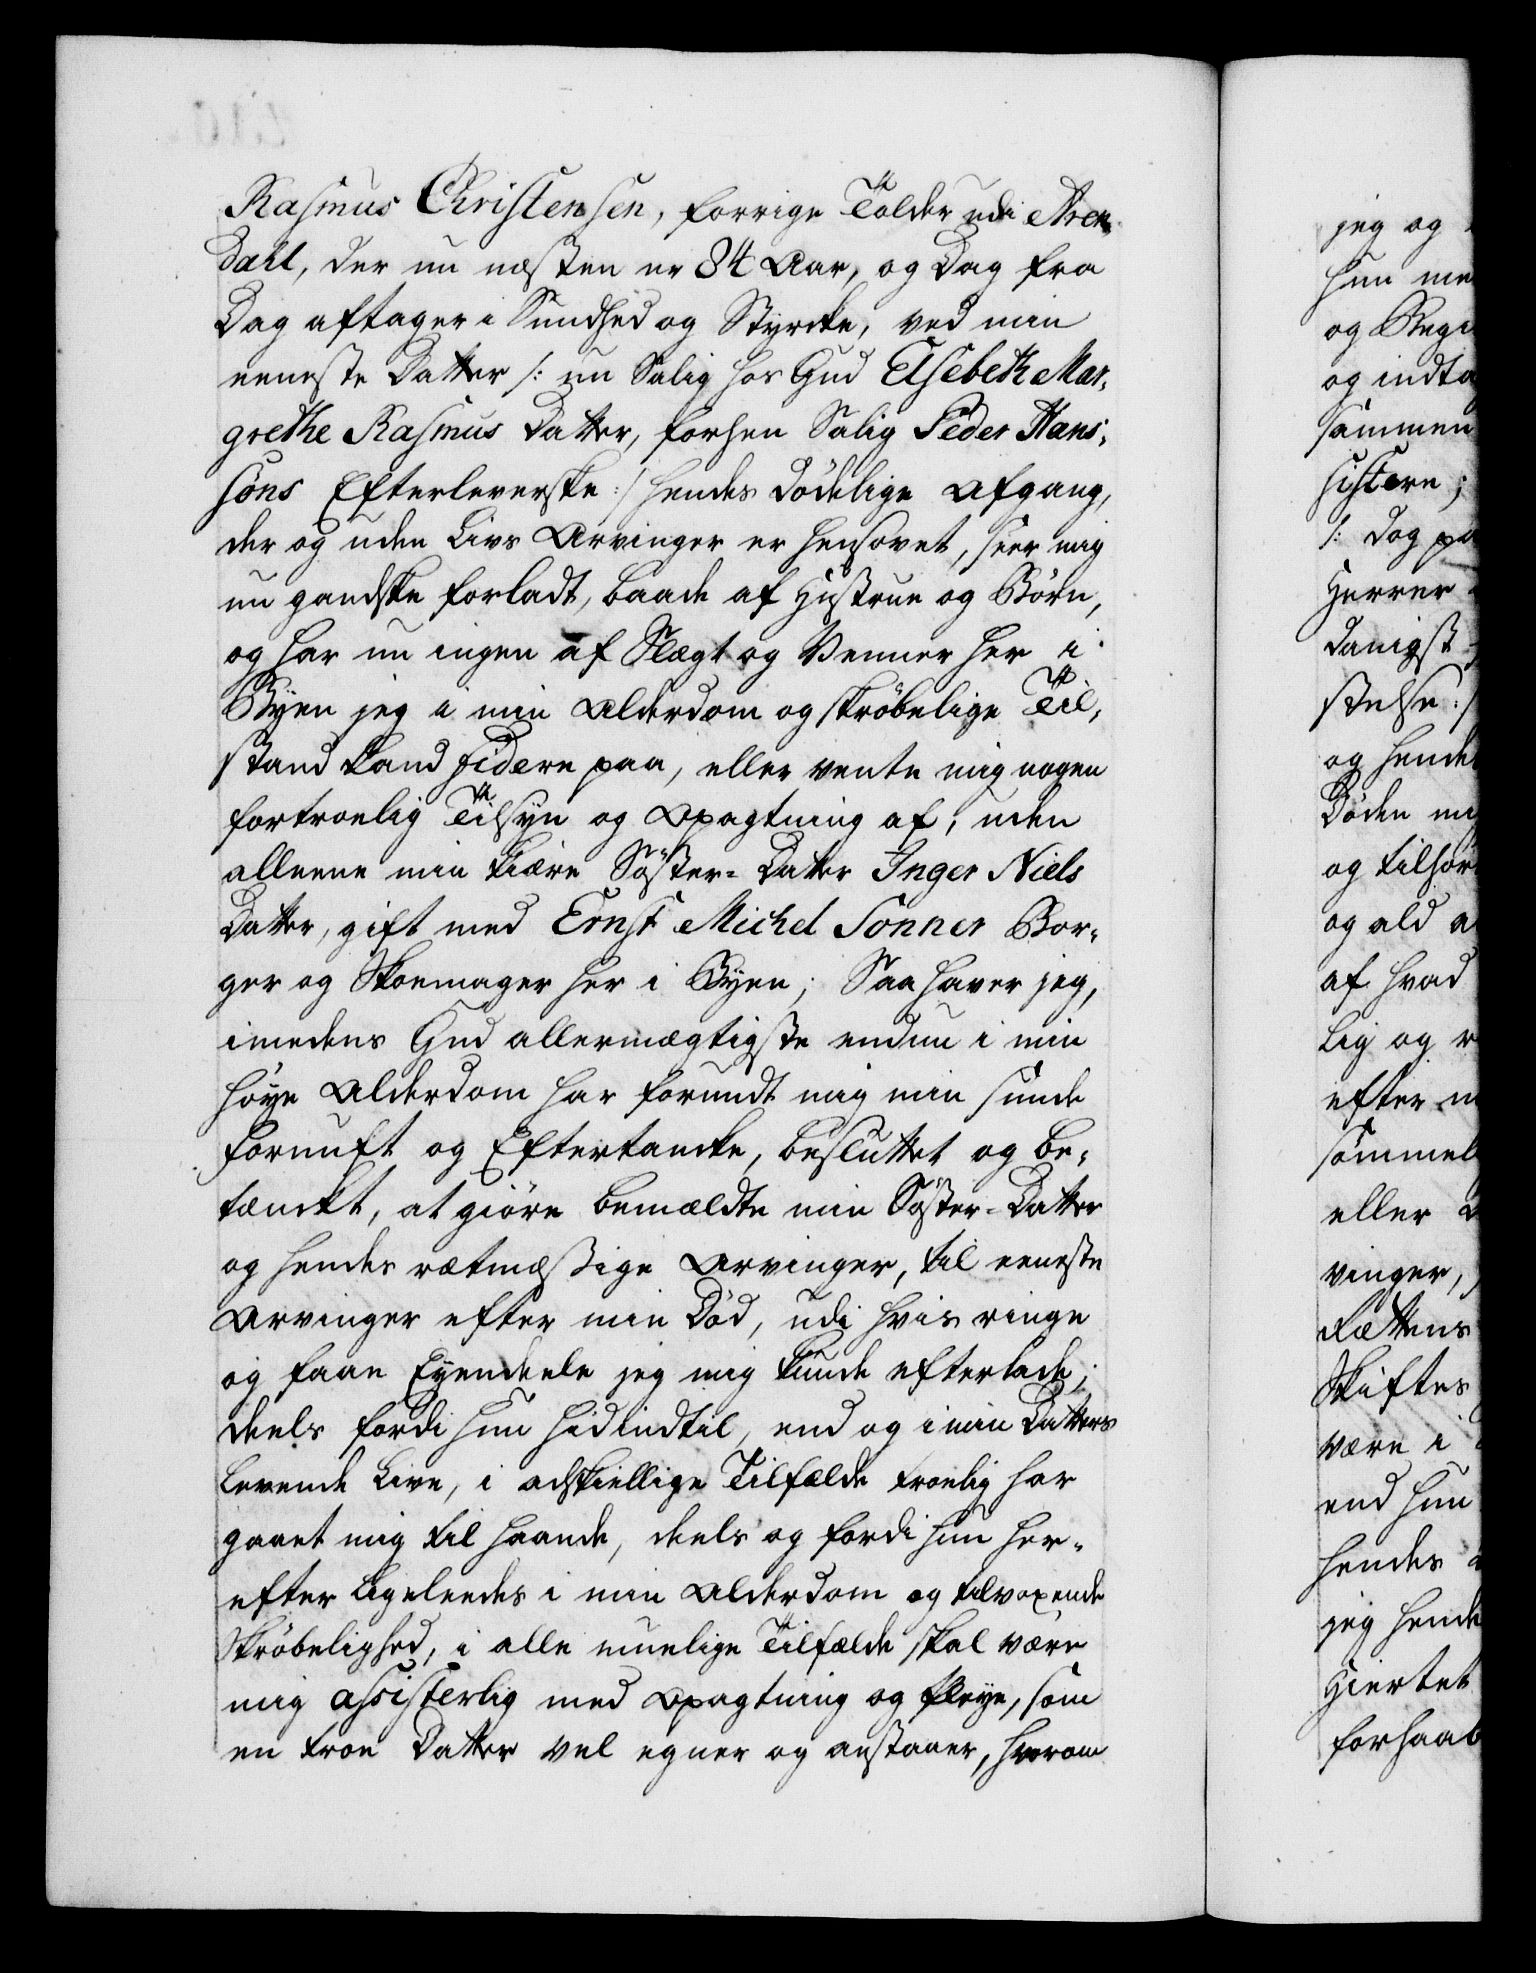 Rasmus Christensen, forrige Tolder udi Aren-
dahl, der nu næsten er 84 Aar, og Dag fra
Dag aftager i Sundhed og Styrcke, ved min
eeneste Datter /: nu Salig hos Gud Elsebeth Mar-
grethe Rasmus Datter, forhen Salig Peder Hans-
søns Efterleverske :/ hendes dødelige Afgang,
der og uden Livs Arvinger er hensovet, seer mig
nu gandske forladt, baade af Hustrue og Børn,
og har nu ingen af Slægt og Venner her i
Byen jeg i min Alderdom og skrøbelige Til-
stand kand fidere paa, eller vente mig nogen
fortroelig Tilsyn og Opagtning af, uden
alleene min kiære Søster-Datter Inger Niels
Datter, gift med Ernst Michel Sonner Bor-
ger og Skoemager her i Byen; Saa haver jeg,
imedens Gud allermægtigste endnu i min
høye Alderdom har forundt mig min sunde
Fornuft og Eftertancke, besluttet og be-
tænckt, at giøre bemældte min Søster-Datter
og hendes rætmæssige Arvinger, til eeneste
Arvinger efter min Død, udi hvis ringe
og faae Eyendeele jeg mig kunde efterlade;
deels fordi hun hidindtil, end og i min Datters
levende Live, i adskiellige Tilfælde troelig har
gaaet mig til haande, deels og fordi hun her-
efter ligeleedes i min Alderdom og tilvoxende
Skrøbelighed, i alle muelige Tilfælde skal være
mig assisterlig med Opagtning og Pleye, som
en troe Datter vel egner og anstaaer, hvorom
jeg og
hun me
og Begi
og indta
sammen
sistere;
/: dog pa
Herrer
danigst
stelse :/
og hendes
Døden mi
og tilhør
og ald a
af hvad
lig og r
efter m
sømmel
eller
vinger,
Rettens
Skiftes
være i
end hun
hendes
jeg hende
Hiertet
forhaab